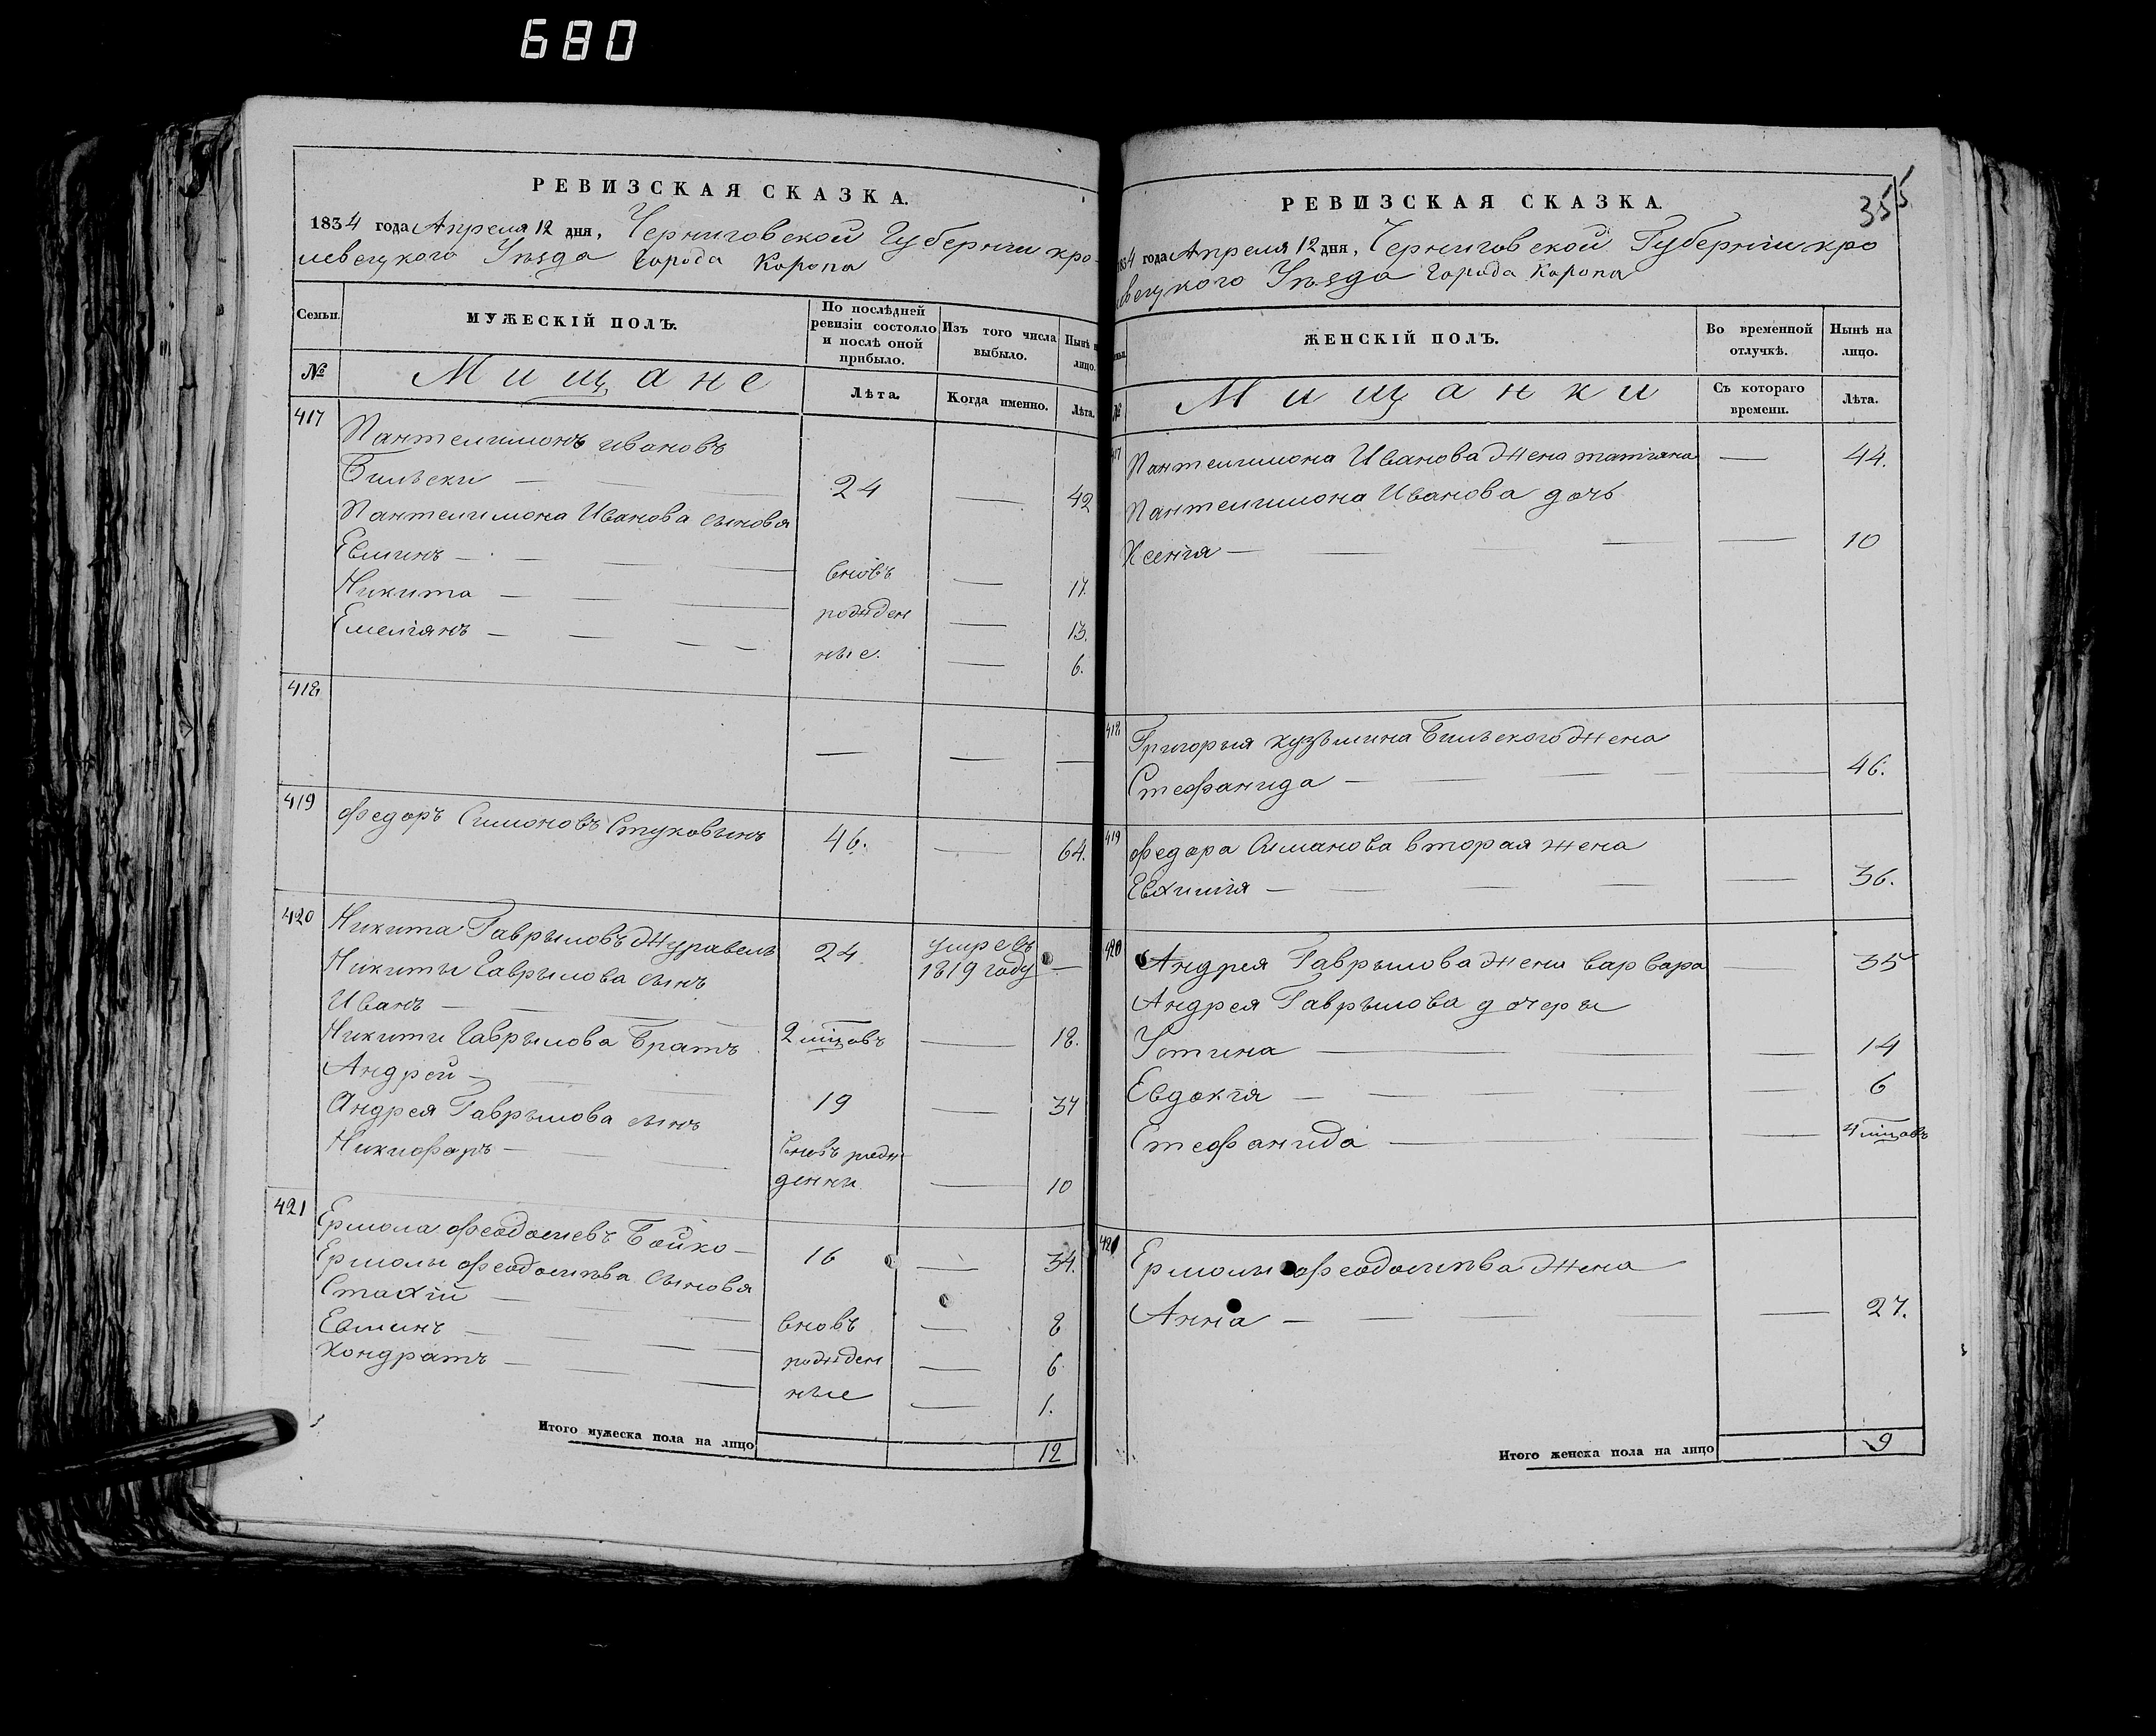 680
РЕВИЗСКАЯ СКАЗКА.
1834 года Апреля 12 дня, Черниговской Губерніи кро-
левецкого Уѣзда города Коропа
Семьи.
МУЖЕСКІЙ ПОЛЪ.
По послѣдней ревизіи состояло и послѣ оной прибыло.
Изъ того числа выбыло.
Нынѣ на лицо.
№
Мищане
Лѣта.
Когда именно.
Лѣта.
417
Пантелимонъ ивановъ
Бильски — 24 — 42
Пантелимона Иванова сыновя
Евминъ — вновь — 17.
Никита — рожден — 13.
Емелiянъ — ные. — 6.
418
— — —
419 Федоръ Симоновъ Стуковинъ 46. — 64.
420 Никита Гаврыловъ Журавель 24. умре въ 1819 году —
Никиты Гаврылова сынъ
Иванъ — 2 мѣцовъ — 18.
Никити Гаврылова Братъ
Андрей — 19 — 37
Андрея Гаврылова сынъ
Никифаръ — вновь рож-
денни — 10
421 Ермола Феодосиевъ Бойко — 16 — 34.
Ермолы Феодосиѣва Сыновя
Стахiй — вновь — 8
Евминъ — рожден — 6
Кондратъ — ные — 1.
Итого мужеска пола на лицо 12
355
РЕВИЗСКАЯ СКАЗКА.
1834 года Апреля 12 дня, Черниговской Губерніи кро
левецкого Уѣзда города Коропа
ЖЕНСКІЙ ПОЛЪ.
Во временной отлучкѣ.
Нынѣ на лицо.
№
Мищанки
Съ котораго времени.
Лѣта.
417 Пантелимона Иванова Жена татiяна — 44.
Пантелимона Иванова дочь
Ксенiя — — 10
418 Григорыя кузьмина Бильского Жена
Стефанида — — 46.
419 Федора Симанова вторая жена
Евхимiя — — 36.
420 Андрея Гаврылова Жена варвара 35
Андрея Гаврылова дочеры
Устина — — 14
Евдокiя — — 6
Стефанида — — 4 мѣцовъ
421 Ермолы Феодосиѣва Жена
Анна — — 27.
Итого женска пола на лицо 9